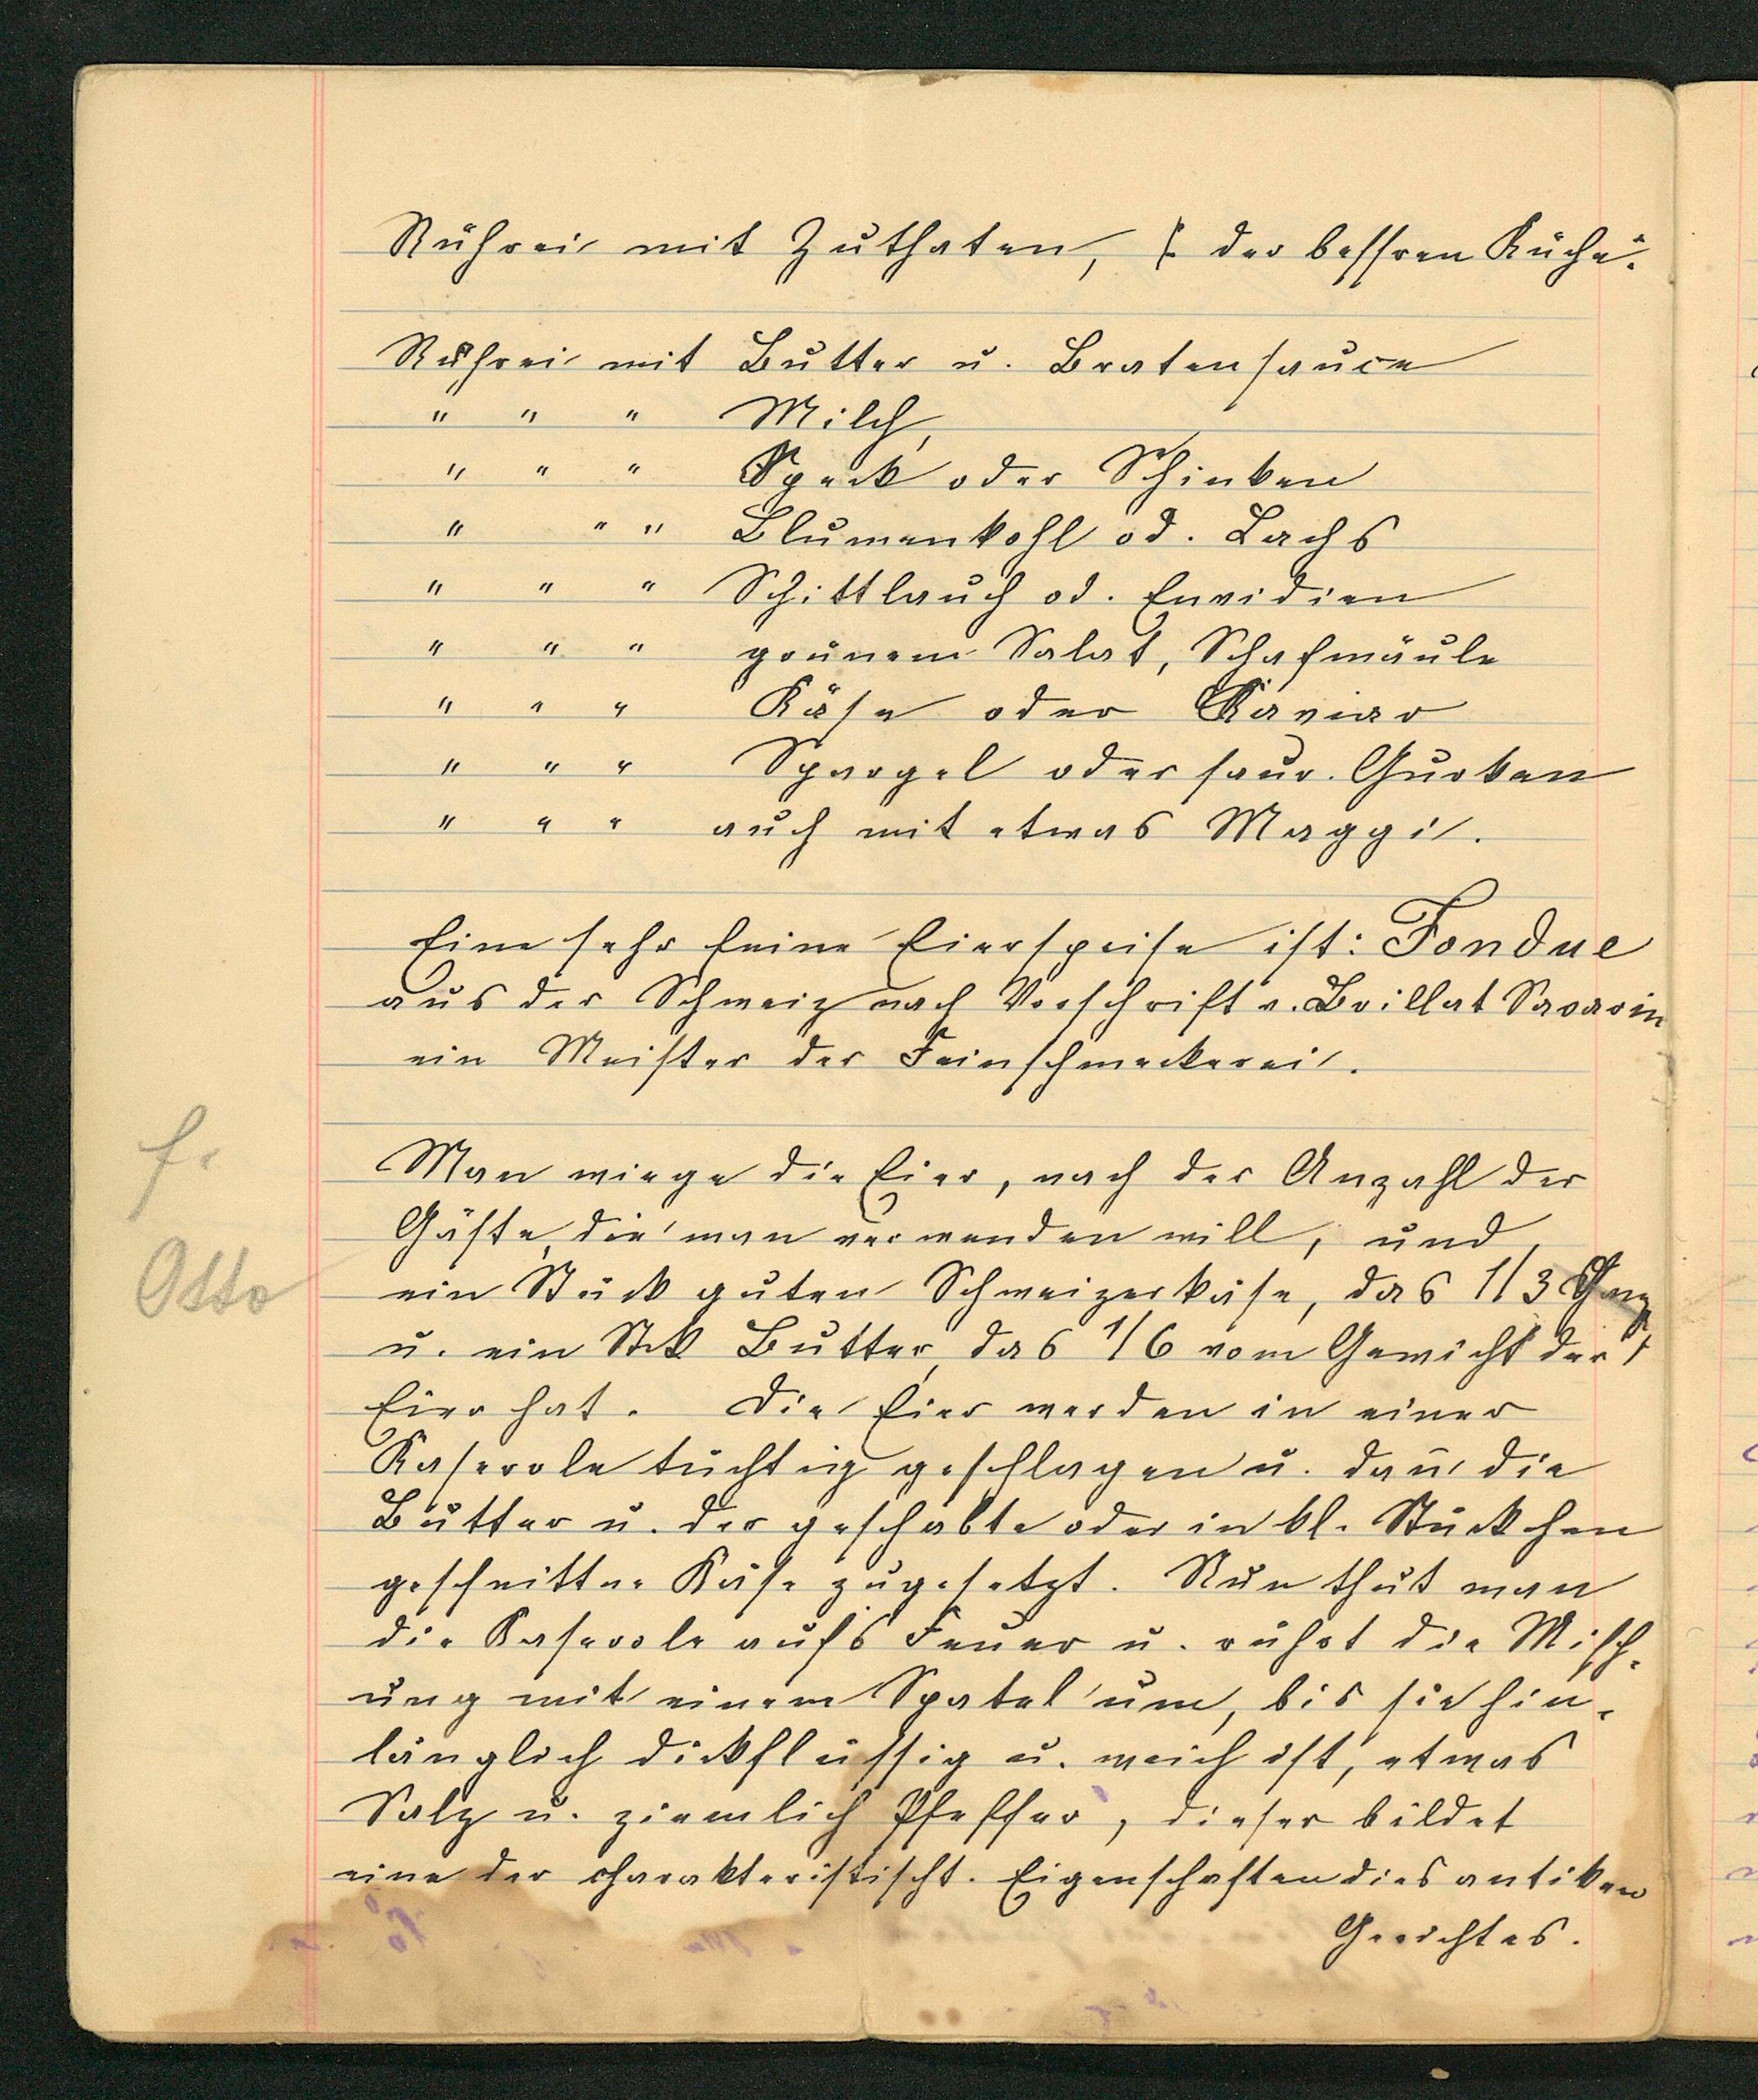 Rührei mit Zuthaten, f. der bessren Küche.
Rührei mit Butter u. Bratensauce
" " " Milch,
" " " Speck oder Schinken
" " " Blumenkohl od. Lachs
" " " Schittlauch od. Envidien
" " " grünem Salat, Schafmäule
" " " Käse oder Kaviar
" " " Spargel oder saur. Gurken
" " " auch mit etwas Maggi.
Eine sehr feine Eierspeise ist: Fondue
aus der Schweiz nach Vorschrift v. Brillat Savarin
ein Meister der Feinschmeckerei.
f.
Otto
Man wiege die Eier, nach der Anzahl der
Gäste, die man verwenden will, und
ein Stück guten Schweizerkäse, das 1/3 Ganz
u. ein Stck Butter, das 1/6 vom Gewicht der
Eier hat. Die Eier werden in einer
Kaserole tüchtig geschlagen u. dañ die
Butter u. der geschabte oder in kl. Stückchen
geschnittne Käse zugesetzt. Nun thut man
die Kaserole aufs Feuer u. rührt die Misch-
ung mit einem Spatel um, bis sie hin-
länglich dickflüssig u. weich ist, etwas
Salz u. ziemlich Pfeffer, dieser bildet
eine der charakteristischt. Eigenschaften dies antiken
Gerichtes.